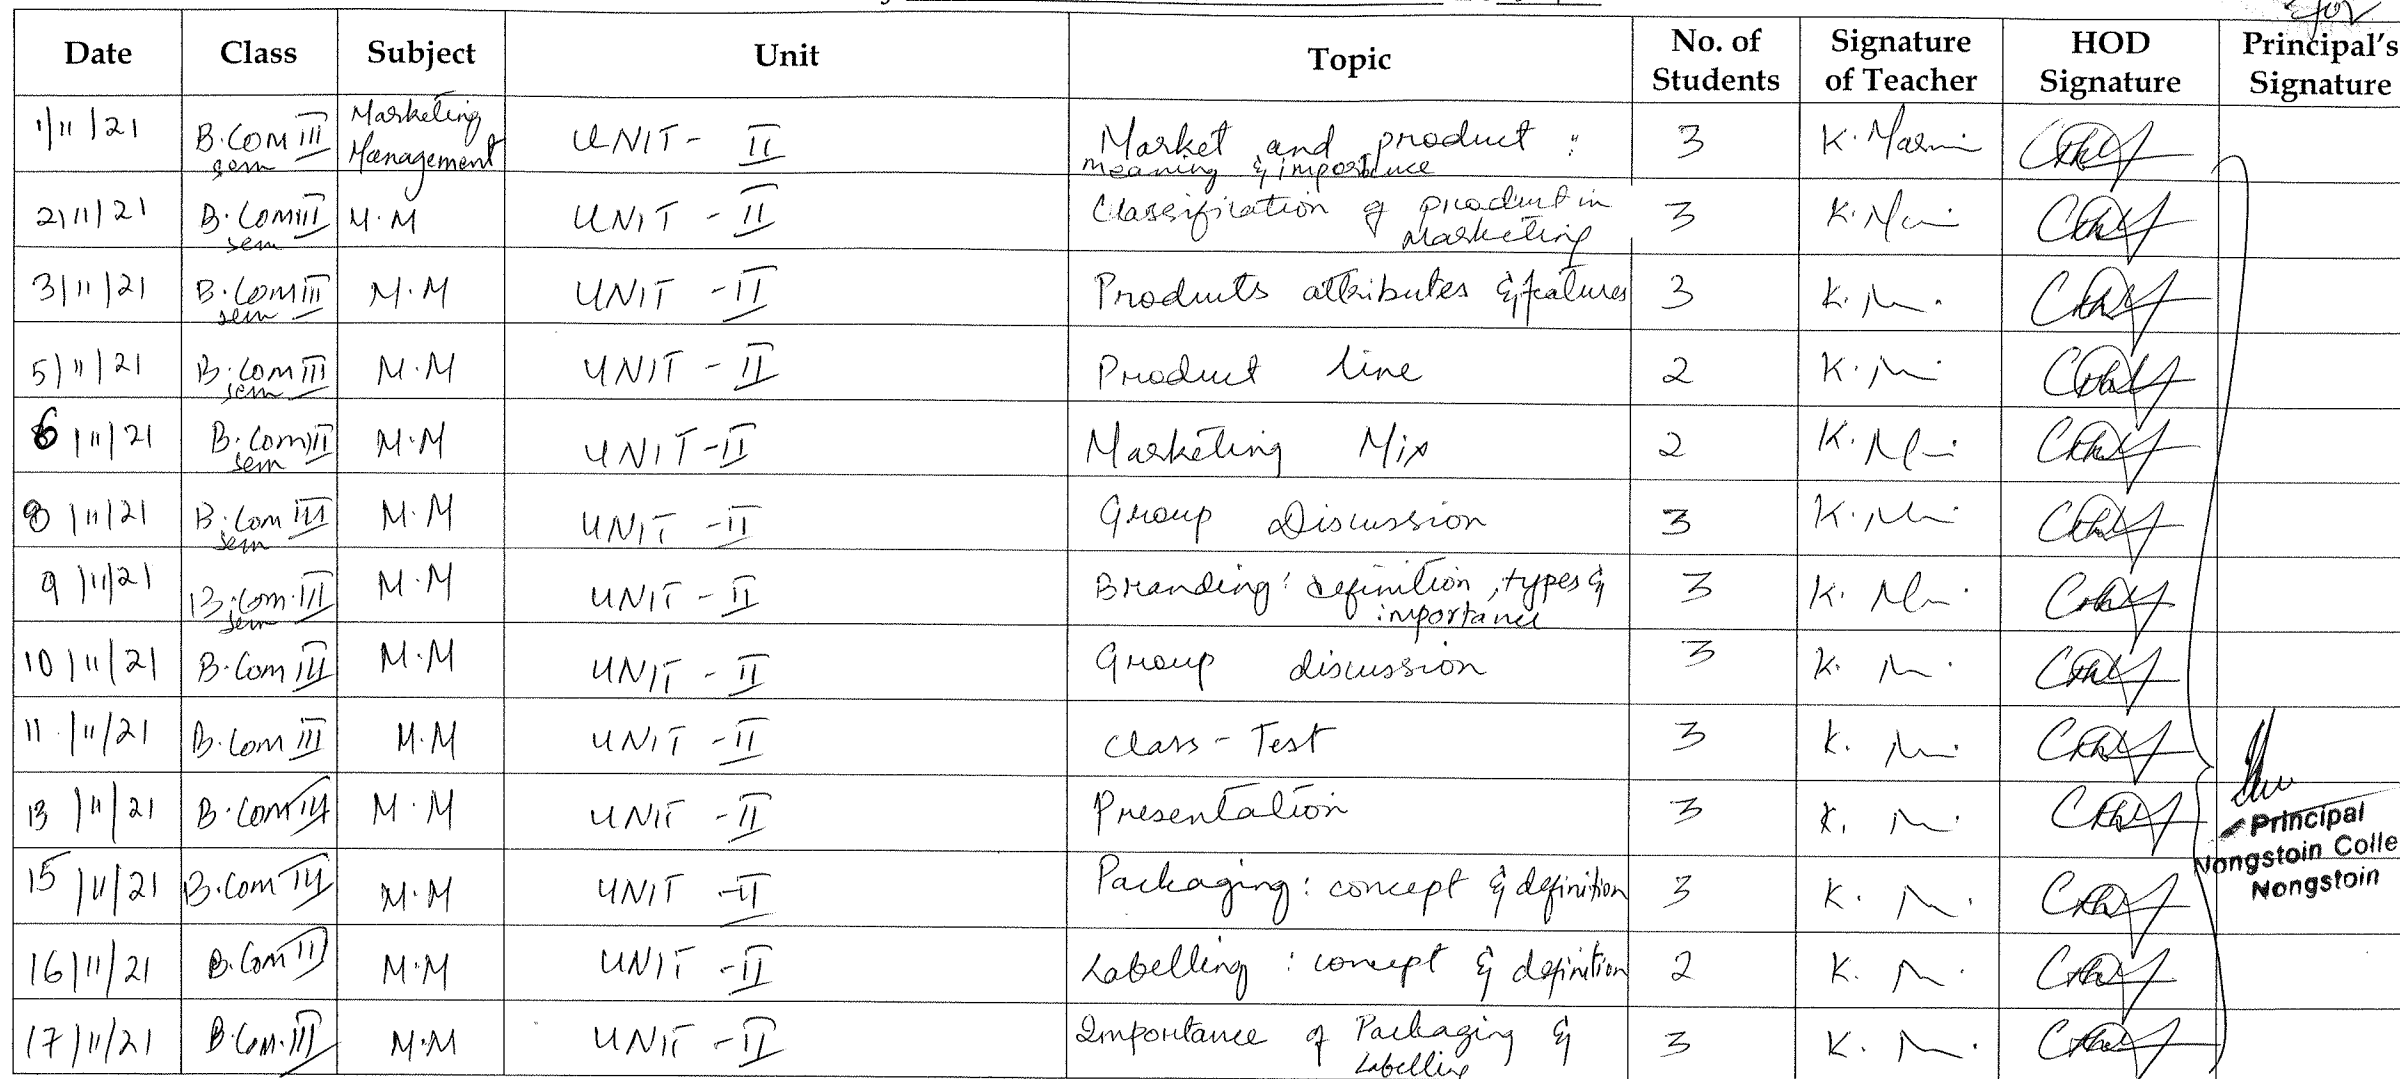 for
Date Class Subject Unit Topic No. of Students Signature of Teacher HOD Signature Principal's Signature
1/11/21 B.Com III sem Marketing Management UNIT - II Market and product : meaning & importance 3 K.
2/11/21 B.Com III sem M.M UNIT - II Classification of product in Marketing 3 K.
3/11/21 B.Com III sem M.M UNIT - II Products attributes & features 3 K.
5/11/21 B.Com III sem M.M UNIT - II Product line 2 K.
6/11/21 B.Com III sem M.M UNIT - II Marketing Mix 2 K.
8/11/21 B.Com III sem M.M UNIT - II Group Discussion 3 K.
9/11/21 B.Com.III sem M.M UNIT - II Branding : definition, types & importance 3 K.
10/11/21 B.Com III M.M UNIT - II Group discussion 3 K.
11/11/21 B.Com III M.M UNIT - II Class - Test 3 K.
13/11/21 B.Com III M.M UNIT - II Presentation 3 K.
Principal
Nongstoin Colle
Nongstoin
15/11/21 B.Com III M.M UNIT - II Packaging : concept & definition 3 K.
16/11/21 B.Com III M.M UNIT - II Labelling : concept & definition 2 K.
17/11/21 B.Com.III M.M UNIT - II Importance of Packaging & Labelling 3 K.